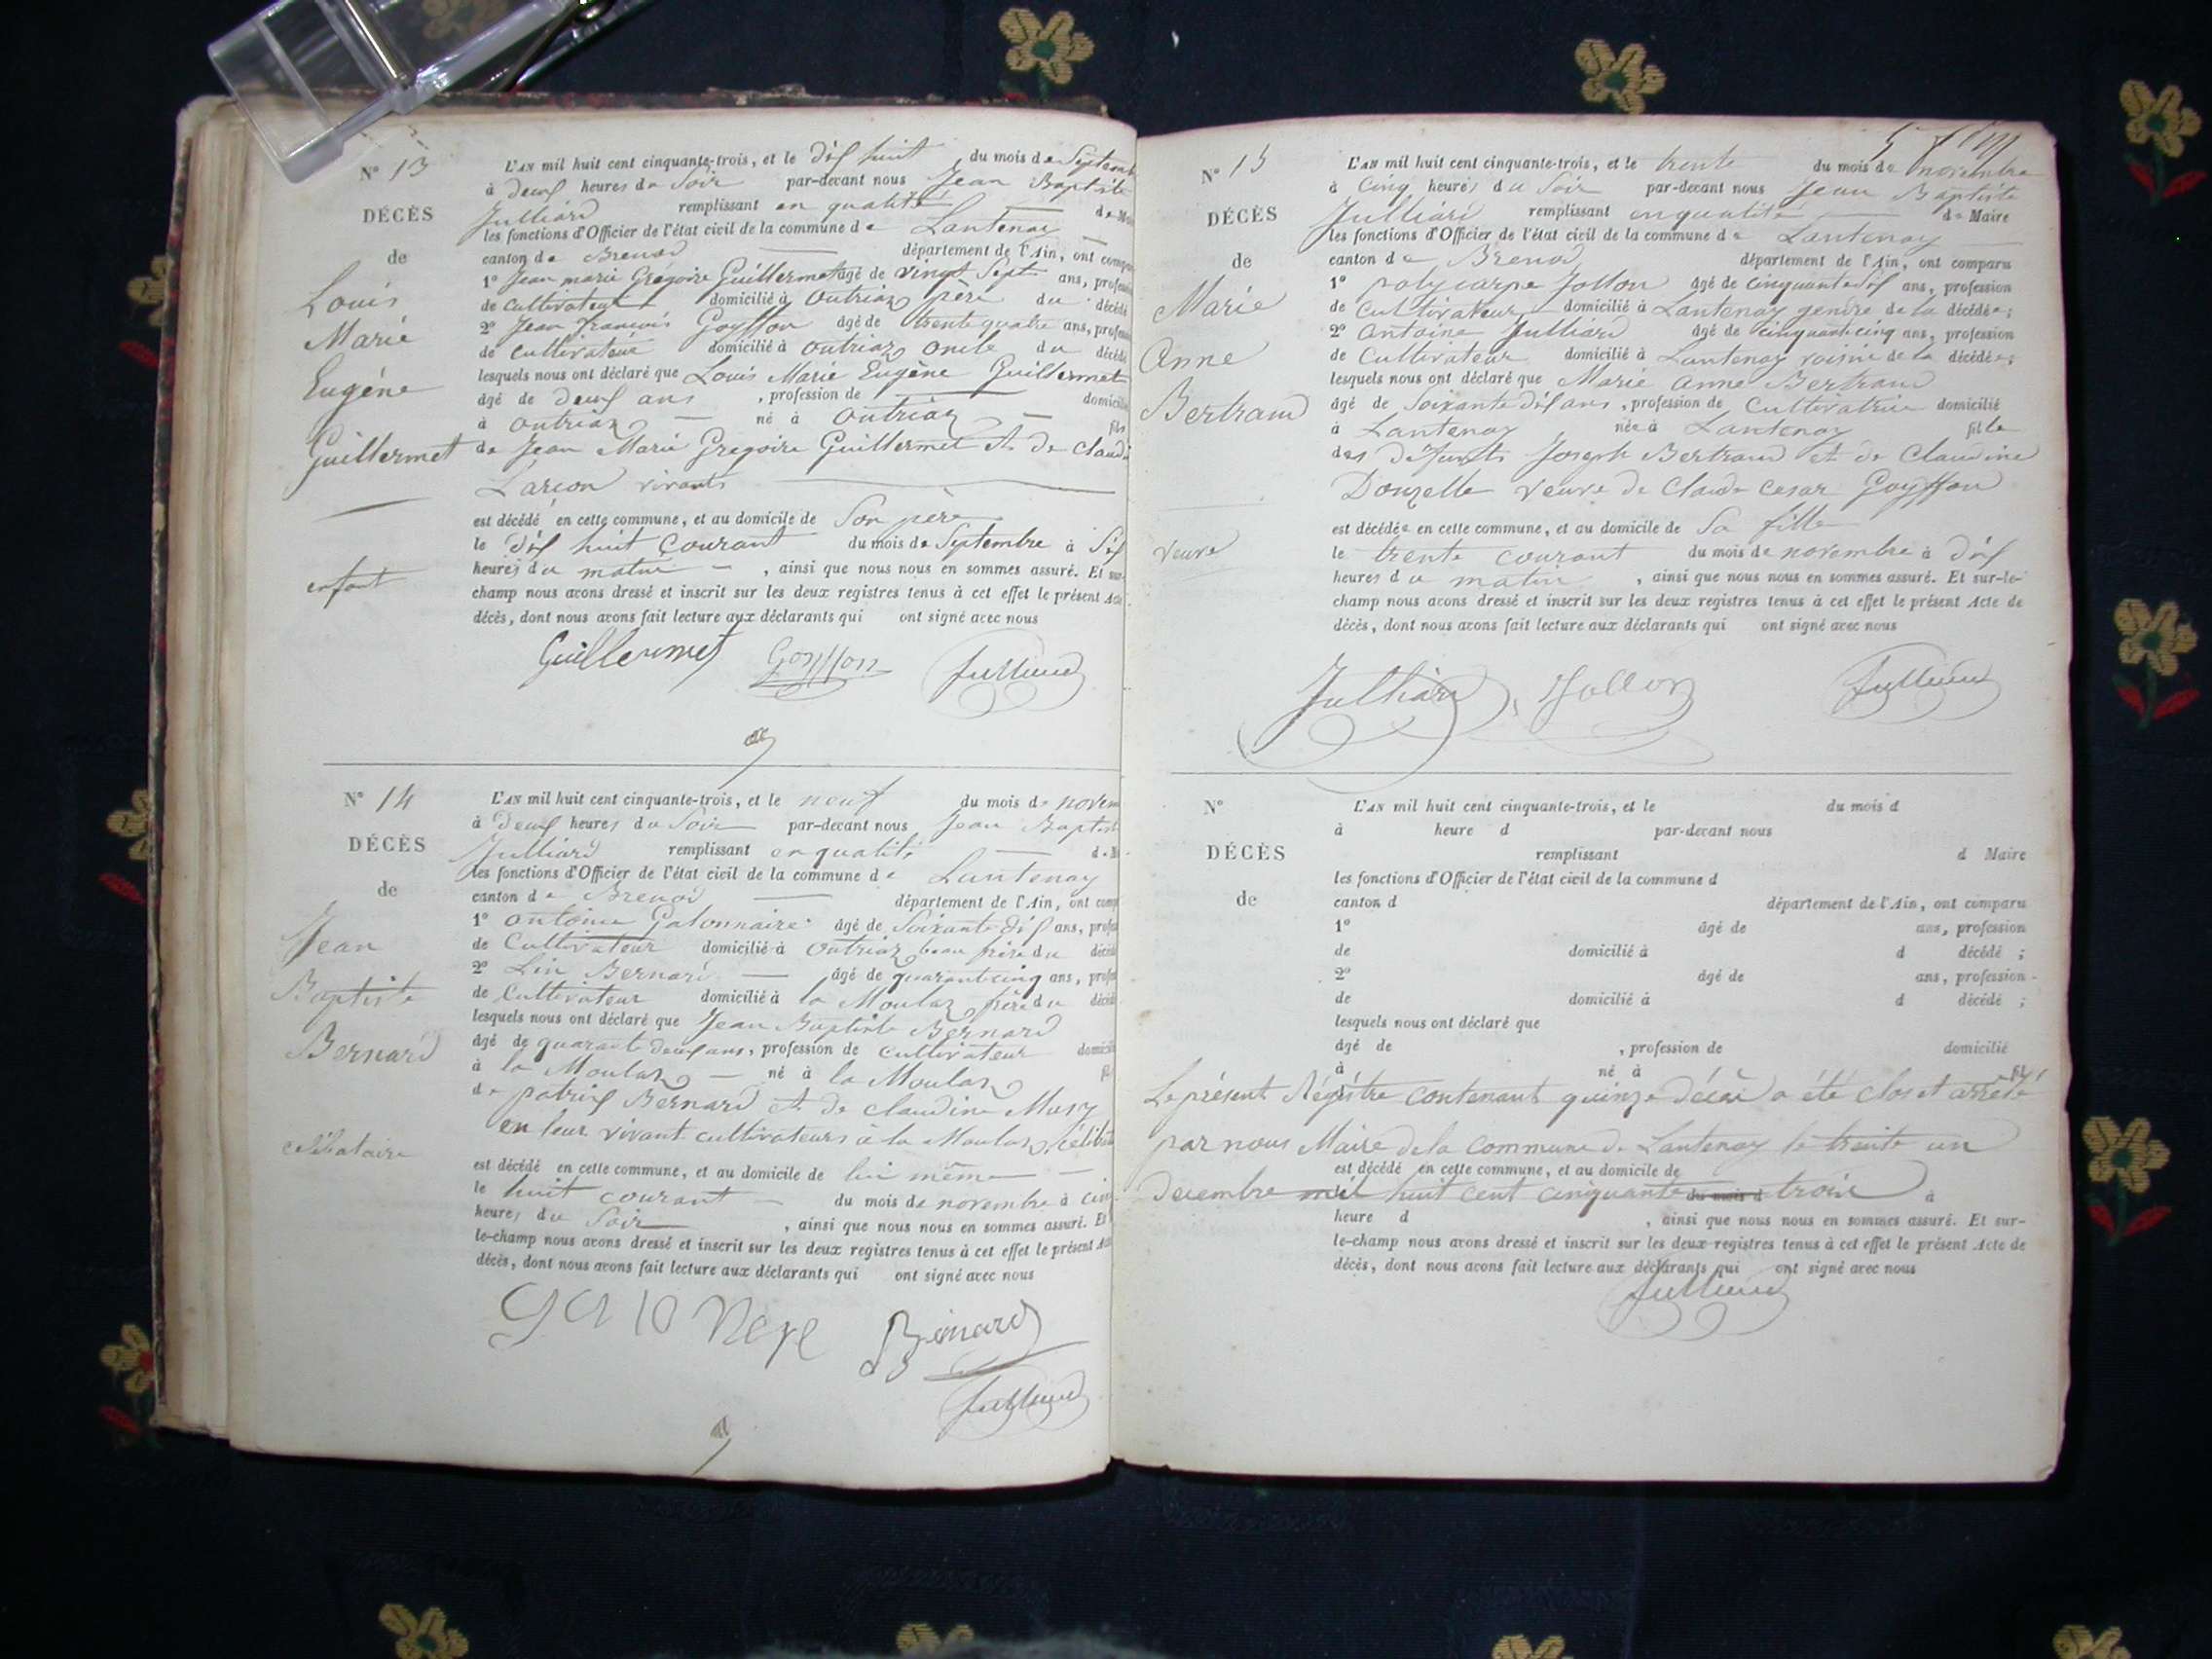 N° 13
DÉCÈS
de
Louis
Marie
Eugéne
Guillermet
enfant
L'AN mil huit cent cinquante-trois, et le dix huit du mois de Septemb
à deux heures du Soir par-devant nous Jean Baptiste
Julliard remplissant en qualité de M
les fonctions d'Officier de l'état civil de la commune de Lantenay
canton de Brenod département de l'Ain, ont compa
1° Jean marie Gregoire Guillermet âgé de vingt Sept ans, profess
de cultivateur domicilié à Outriaz père du décédé
2° Jean françois Goyffon âgé de trente quatre ans, profess
de cultivateur domicilié à outriaz oncle du décédé
lesquels nous ont déclaré que Louis Marie Eugène Guillermet
âgé de deux ans , profession de domicilié
à outriaz né à outriaz fils
de Jean Marie Gregoire Guillermet et de Claudi
Larçon vivants
est décédé en cette commune, et au domicile de Son père
le dix huit courant du mois de Septembre à Six
heures du matin , ainsi que nous nous en sommes assuré. Et sur-
champ nous avons dressé et inscrit sur les deux registres tenus à cet effet le présent Acte
décès, dont nous avons fait lecture aux déclarants qui ont signé avec nous
Guillermet Goyffon Julliard
N° 14
DÉCÈS
de
Jean
Baptiste
Bernard
célibataire
L'AN mil huit cent cinquante-trois, et le neuf du mois de novem
à deux heures du Soir par-devant nous Jean Baptist
Julliard remplissant en qualité de M
les fonctions d'Officier de l'état civil de la commune de Lantenay
canton de Brenod département de l'Ain, ont comp
1° antoine Galonnaire âgé de Soixante dix ans, profes
de Cultivateur domicilié à outriaz beau frère du décéd
2° Lin Bernard âgé de quarante cinq ans, profes
de Cultivateur domicilié à la Moulaz frère du décéd
lesquels nous ont déclaré que Jean Baptiste Bernard
âgé de quarante deux ans, profession de cultivateur domicili
à la Moulaz né à la Moulaz fil
de patrix Bernard et de claudine Mary
en leur vivant cultivateurs à la Moulaz, célibat
est décédé en cette commune, et au domicile de lui même
le huit courant du mois de novembre à cin
heures du Soir , ainsi que nous nous en sommes assuré. Et
le-champ nous avons dressé et inscrit sur les deux registres tenus à cet effet le présent Act
décès, dont nous avons fait lecture aux déclarants qui ont signé avec nous
Bernard
Julliard
N° 15
DÉCÈS
de
Marie
Anne
Bertrand
veuve
L'AN mil huit cent cinquante-trois, et le trente du mois de novembre
à Cinq heures du Soir par-devant nous Jean Baptiste
Julliard remplissant en qualité de Maire
les fonctions d'Officier de l'état civil de la commune de Lantenay
canton de Brenod département de l'Ain, ont comparu
1° polycarpe Jollon âgé de cinquante dix ans, profession
de Cultivateur domicilié à Lantenay gendre de la décédée;
2° Antoine Julliard âgé de cinquante cinq ans, profession
de Cultivateur domicilié à Lantenay voisin de la décédée;
lesquels nous ont déclaré que Marie Anne Bertrand
âgé de Soixante dix ans, profession de Cultivatrice domicilié
à Lantenay née à Lantenay fille
des défunts Joseph Bertrand et de Claudine
Donzelle veuve de Claude Cesar Goyffon
est décédée en cette commune, et au domicile de Sa fille
le trente courant du mois de novembre à dix
heures du matin , ainsi que nous nous en sommes assuré. Et sur-le-
champ nous avons dressé et inscrit sur les deux registres tenus à cet effet le présent Acte de
décès, dont nous avons fait lecture aux déclarants qui ont signé avec nous
Julliard Jollon Julliard
N°
DÉCÈS
de
L'AN mil huit cent cinquante-trois, et le du mois d
à heure d par-devant nous
remplissant d Maire
les fonctions d'Officier de l'état civil de la commune d
canton d département de l'Ain, ont comparu
1° âgé de ans, profession
de domicilié à d décédé ;
2° âgé de ans, profession
de domicilié à d décédé ;
lesquels nous ont déclaré que
âgé de , profession de domicilié
à né à fil
Le présent Régistre contenant quinze décès a été clos et arrêté
par nous Maire de la Commune de Lantenay le trente un
est décédé en cette commune, et au domicile de
Decembre mil huit cent cinquante du mois d trois à
heure d , ainsi que nous nous en sommes assuré. Et sur-
le-champ nous avons dressé et inscrit sur les deux registres tenus à cet effet le présent Acte de
décès, dont nous avons fait lecture aux déclarants qui ont signé avec nous
Julliard